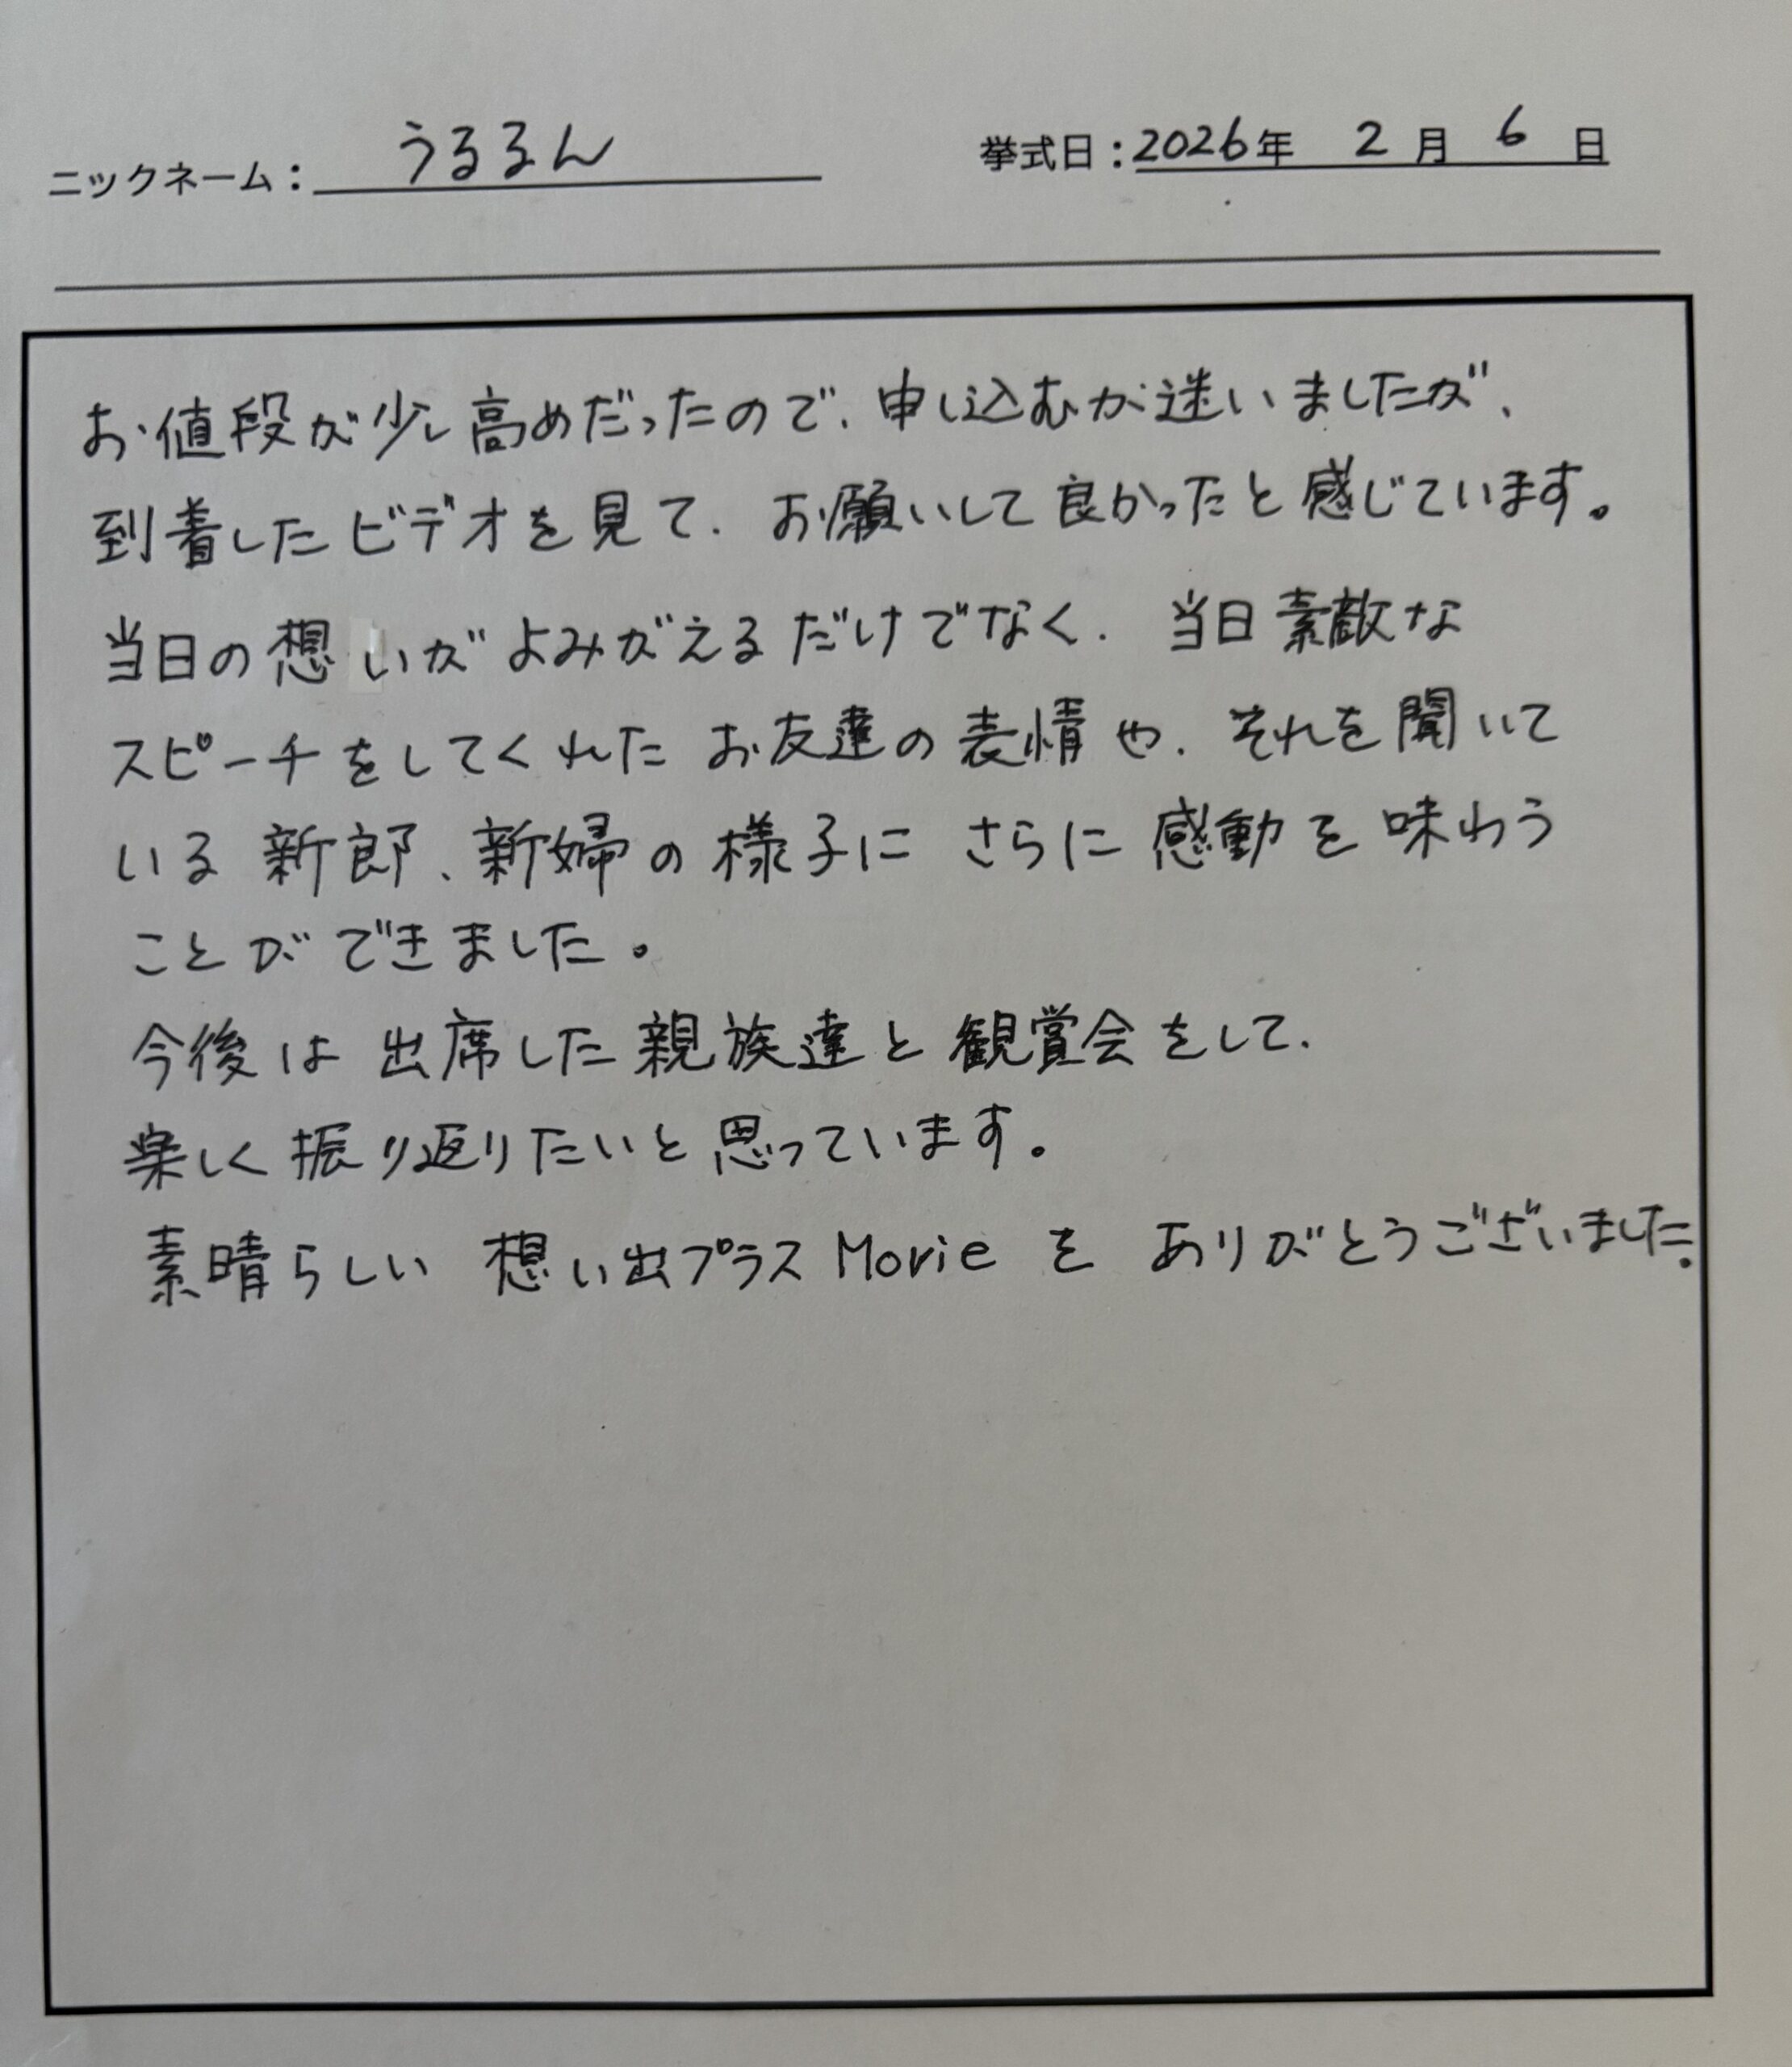 ニックネーム： うるるん 挙式日：2026年 2月 6日
お値段が少し高めだったので、申し込むか迷いましたが、
到着したビデオを見て、お願いして良かったと感じています。
当日の想いがよみがえるだけでなく、当日素敵な
スピーチをしてくれたお友達の表情や、それを聞いて
いる新郎、新婦の様子にさらに感動を味わう
ことができました。
今後は出席した親族達と観賞会をして、
楽しく振り返りたいと思っています。
素晴らしい想い出プラスMovieをありがとうございました。